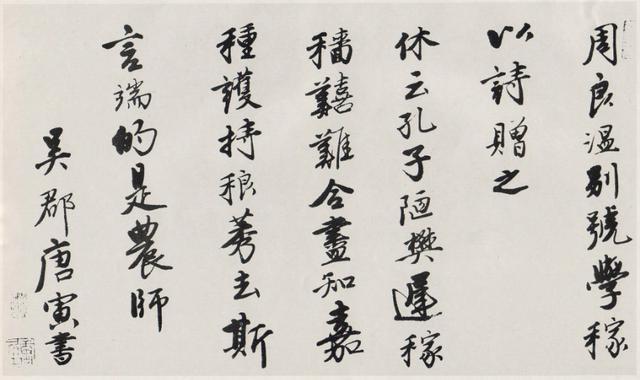 周良温别號學稼
以詩贈之
休云孔子陋樊遲稼
穡囏難合盡知嘉
種護持稂莠去斯
言端的是農師
吳郡唐寅書